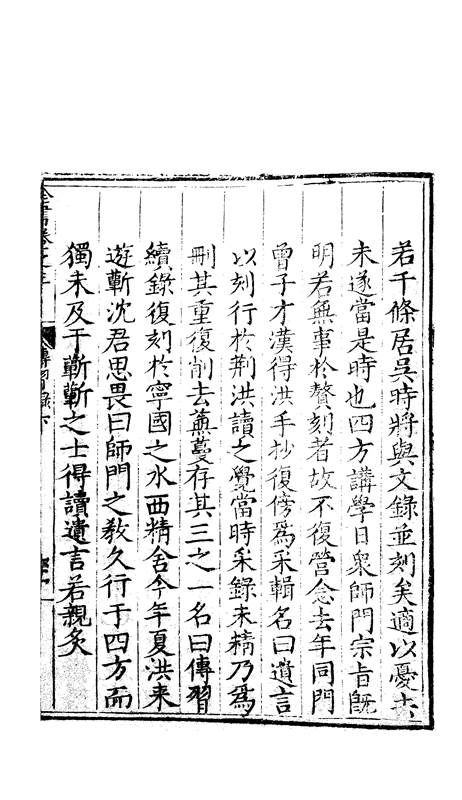 若干條居吳時將與文錄並刻矣適以憂去
未遂當是時也四方講學日衆師門宗旨旣
明若無事於贅刻者故不復營念去年同門
曾子才漢得洪手抄復傍爲采輯名曰遺言
以刻行於荆洪讀之覺當時采錄未精乃爲
刪其重復削去蕪蔓存其三之一名曰傳習
續錄復刻於寧國之水西精舍今年夏洪來
遊蘄沈君思畏曰師門之敎久行于四方而
獨未及于蘄蘄之士得讀遺言若親炙
全書卷之三
傳習錄下